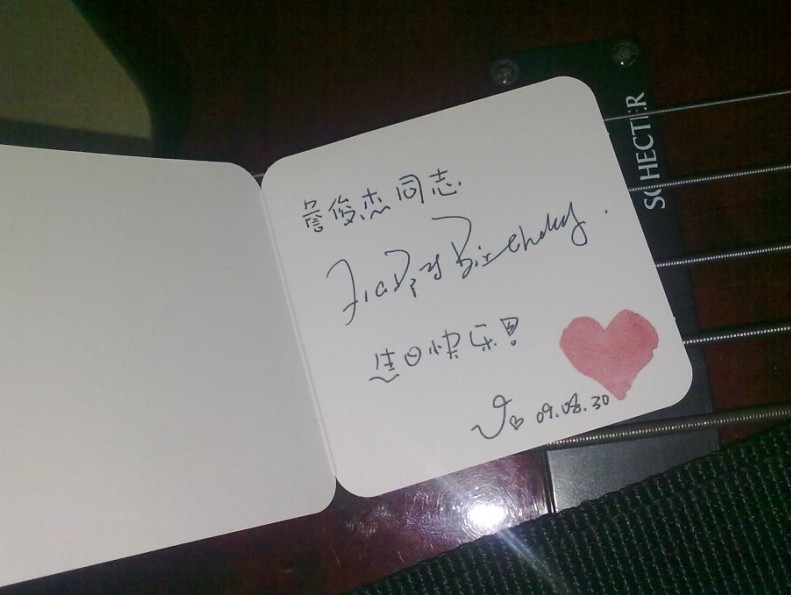 詹俊杰同志
Happy Birthday.
生日快乐!
09.08.30
SCHECTER